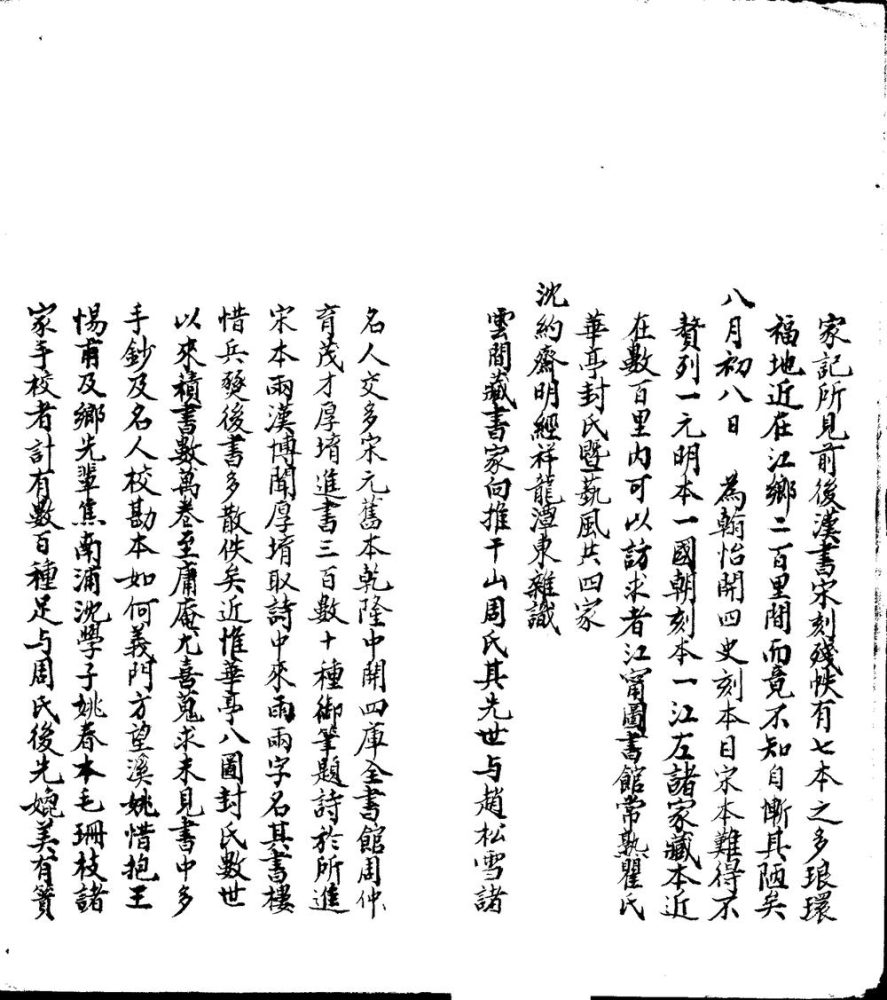 家記所見前後漢書宋刻殘帙有七本之多琅環
福地近在江鄉二百里間而竟不知自慚其陋矣
八月初八日　為翰怡開四史刻本目宋本難得不
贅列一元明本一國朝刻本一江左諸家藏本近
在數百里內可以訪求者江甯圖書館常熟瞿氏
華亭封氏暨藝風共四家
沈約齋明經祥龍潭東雜識
雲間藏書家向推干山周氏其先世与趙松雪諸
名人交多宋元舊本乾隆中開四庫全書館周仲
育茂才厚堉進書三百數十種御筆題詩於所進
宋本兩漢博聞厚堉取詩中來雨兩字名其書樓
惜兵燹後書多散佚矣近惟華亭八圖封氏數世
以來積書數萬卷至庸庵尤喜蒐求未見書中多
手鈔及名人校勘本如何義門方望溪姚惜抱王
惕甫及鄉先輩焦南浦沈學子姚春本毛珊枝諸
家手校者計有數百種足与周氏後先媲美有簣